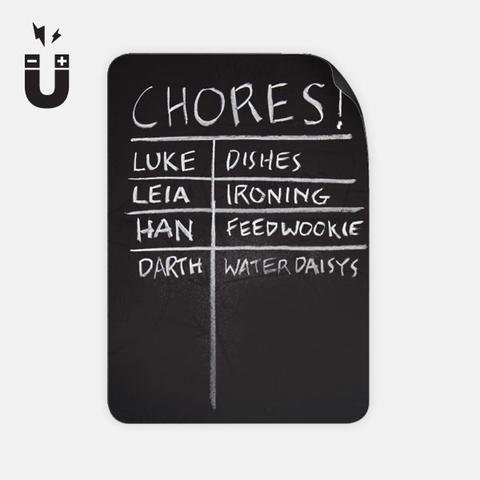 CHORES!
LUKE DISHES
LEIA IRONING
HAN FEEDWOOKIE
DARTH WATER DAISYS